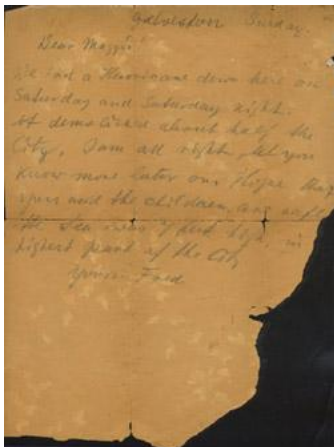 Galveston Sunday.
Dear Maggie
We had a Hurricane down here on
Saturday and Saturday night.
it demolished about half the
City, I am all right, let you
know more later our House
yours and the children, are safe
the Sea was 7 feet high, in
highest part of the City
Yours Fred